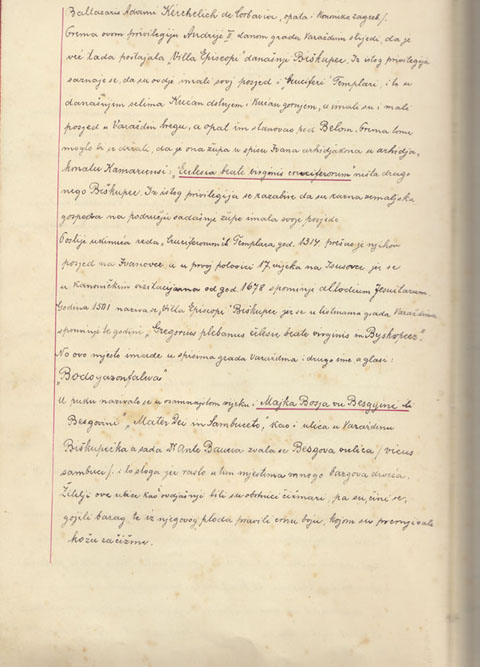 Baltazaris Adami Kerchelich de Corbavia, opata i kanonika Zagreb/.
Prema ovom privilegiju Andrije II danom gradu Varaždinu slijedi, da je
već tada postajala „Villa Episcopi" današnji Biškupec. Iz istog privilegija
saznaje se, da su ovdje imali svoj posjed i „Cruciferi" Templari, i to u
današnjim selima Kućan dolnjem i Kućan gornjem, a imali su i mali
posjed u Varaždin bregu, a opat im stanovao pod Belom. Prema tome
moglo bi se držati, da je ona župa u spisu Ivana arhidjakona u arhidja-
konatu Kamarcensi: „Ecclesia beate virginis cruciferorum" ništa drugo
nego Biškupec. Iz istog privilegija se razabire da su razna zemaljska
gospoda na području sadašnje župe imala svoje posjede.
Poslije ukinuća reda „Cruciferomih Templara god. 1314 prešao je njihov
posjed na Ivanovce, a u prvoj polovici 17. vijeka na Isusovce jer se
u kanoničkim vizitacijama od god. 1678 spominje allodium Jesuitarum
Godina 1501 naziva se „Villa Episcopi" Biškupec jer se u listinama grada Varaždina
spominje te godine „Gregorius plebanus eclesie beate virginis in Byskopecz".
No ovo mjesto imade u spisima grada Varaždina i drugo ime a glasi:
„Bodogazonfalwa"
U puku nazivalo se u osamnajstom vijeku i Majka Bosja vu Bezgyine ili
Besgovini" „Mater Dei in Sambuceto", kao i ulica u Varaždinu
Biškupečka a sada Dr Ante Bauera zvala se Bezgova vulica / vicus
sambuci /. i to stoga jer raslo u tim mjestima mnogo bazgova drveća.
Žitelji ove ulice kao ovdjašnji bili su obrtnici čižmari, pa su, čini se,
gojili bazag te iz njegovog ploda pravili crnu boju, kojom su premazivali
kožu za čižme.